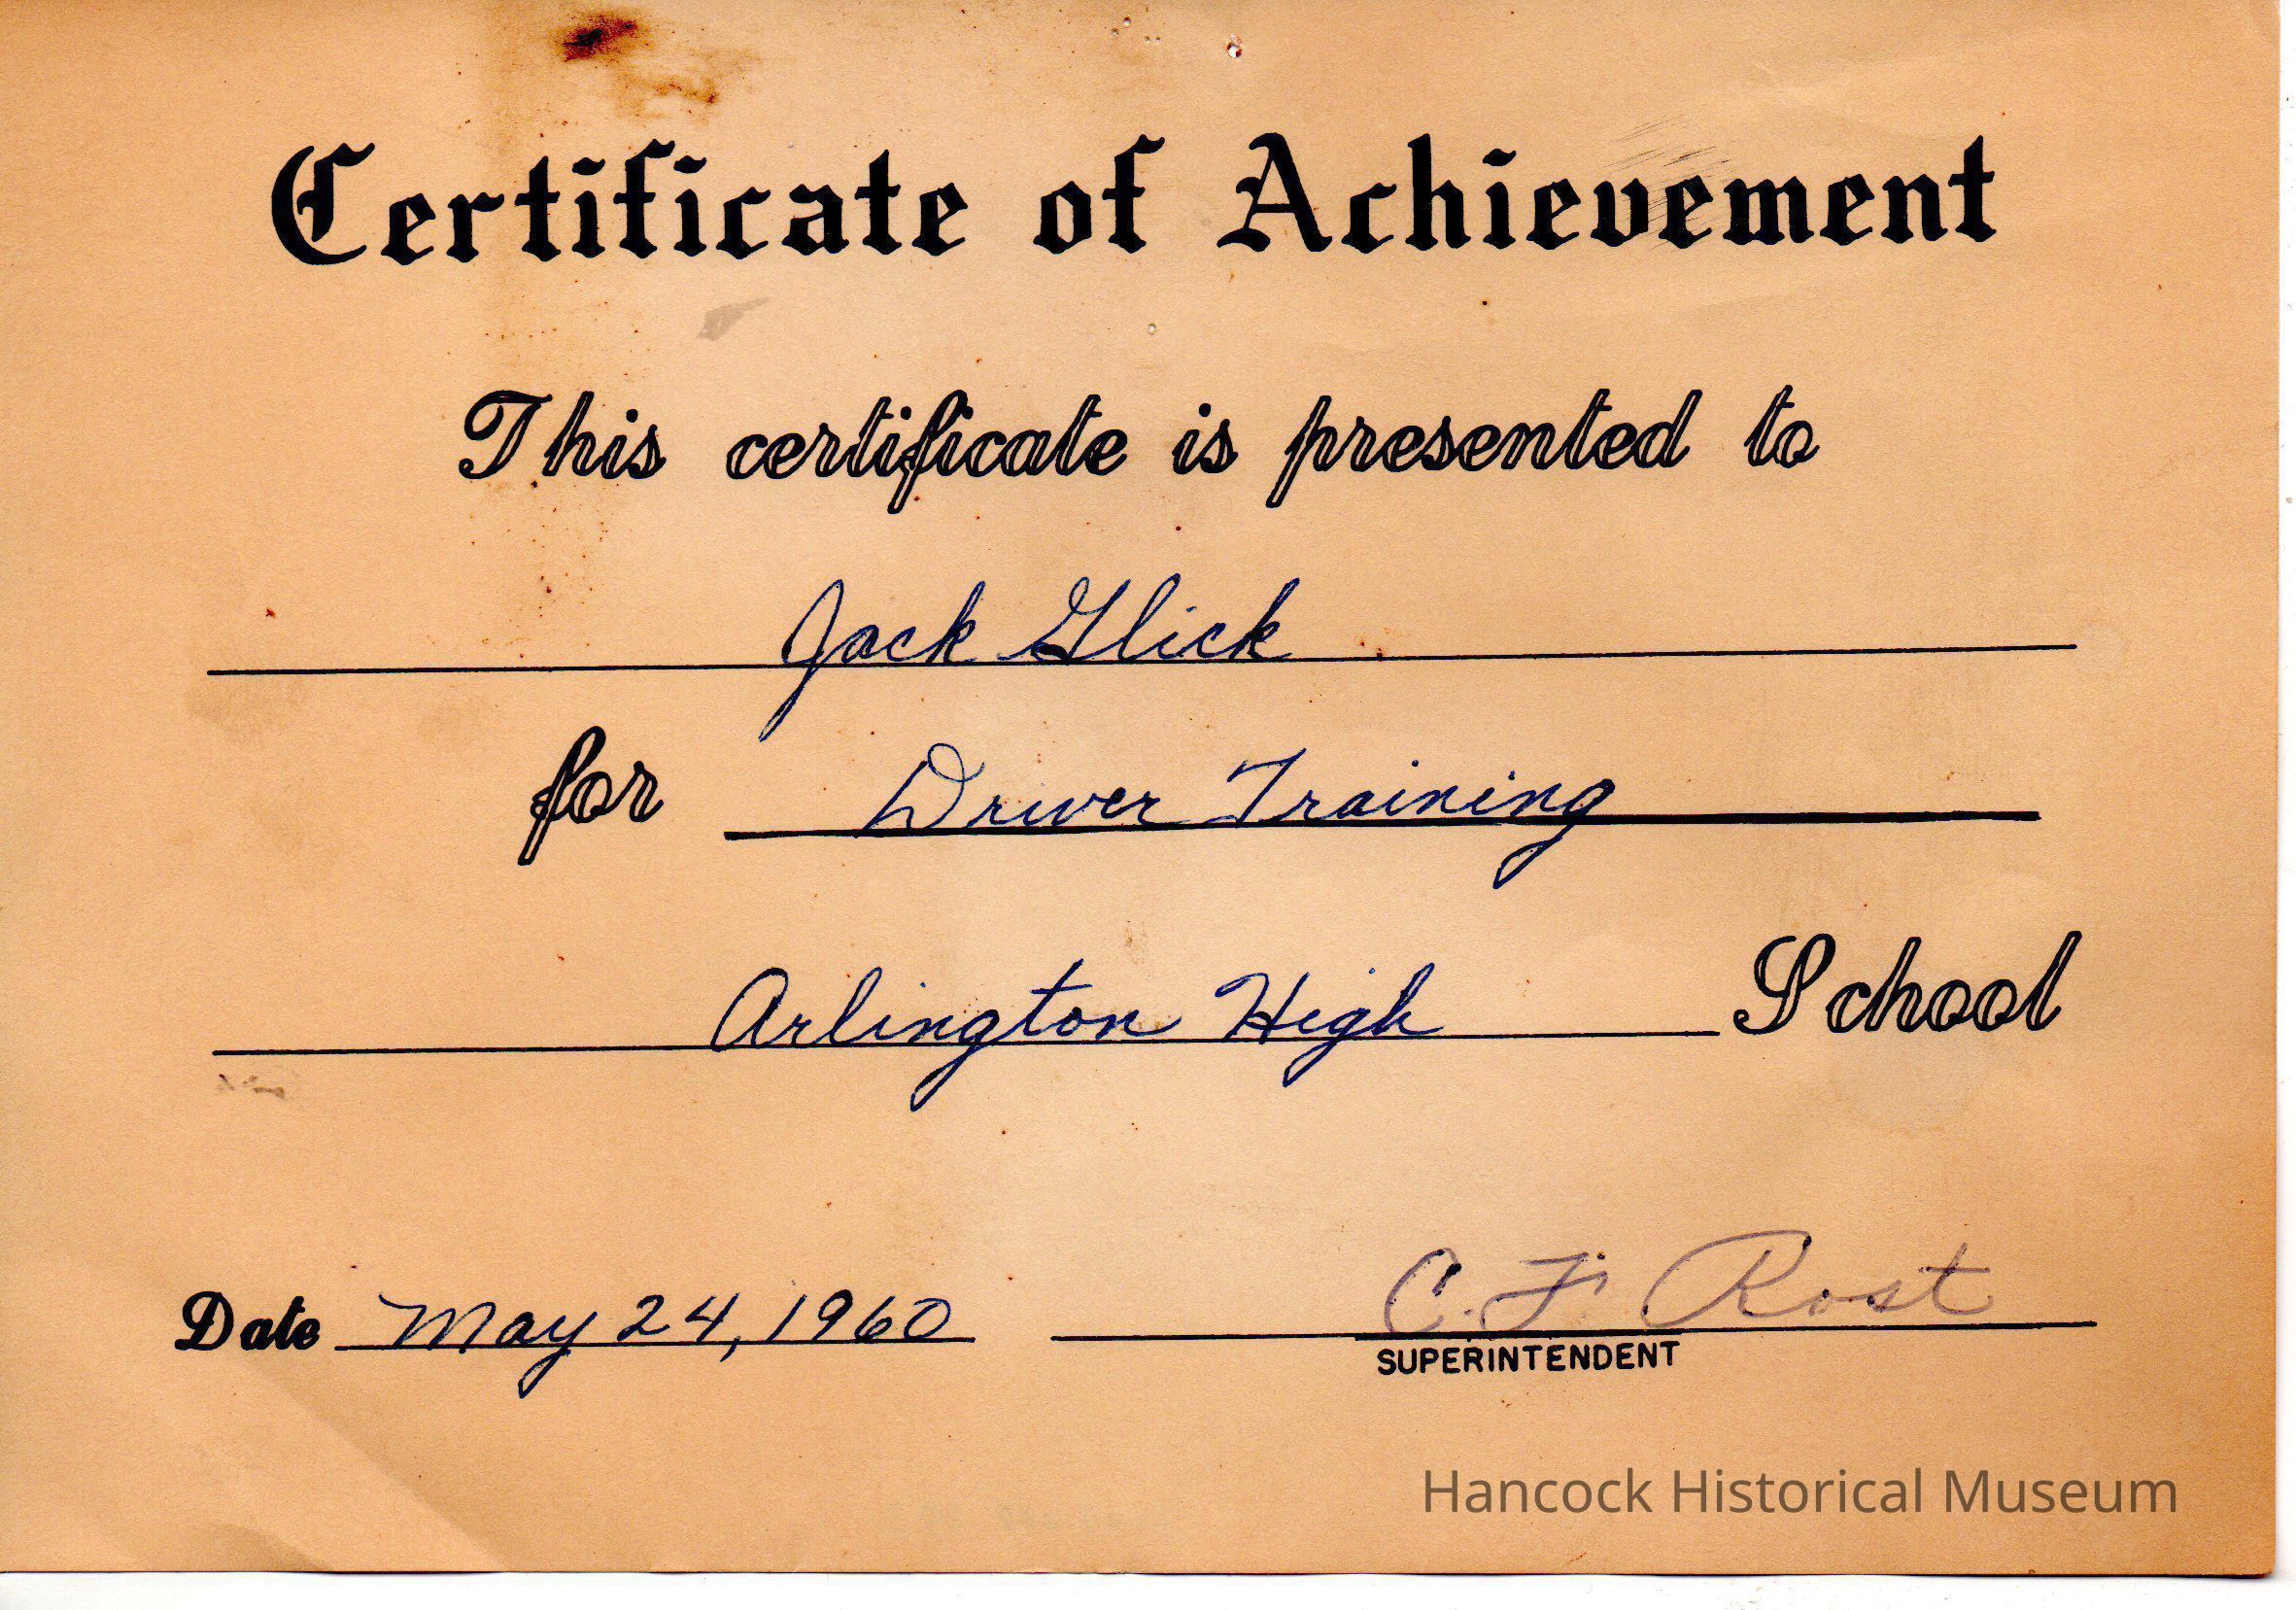 Certificate of Achievement
This certificate is presented to
Jack Glick
for Driver Training
Arlington High School
Date May 24, 1960 C. F. Rost
SUPERINTENDENT
Hancock Historical Museum